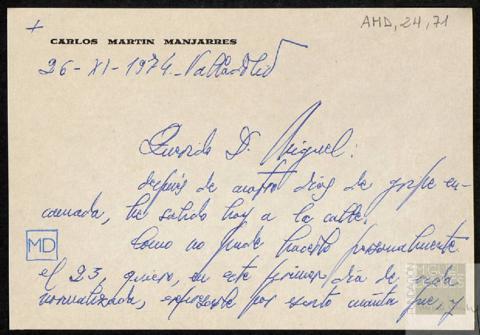 +
AMD, 24, 71
CARLOS MARTIN MANJARRES
26-XI-1974. Valladolid
Querido D. Miguel:
después de cuatro días de gripe en-
camada, he salido hoy a la calle.
Como no pude hacerlo personalmente
el 23, quiero, en este primer día de vida
normalizada, expresarle por escrito cuanta fue, y
MD